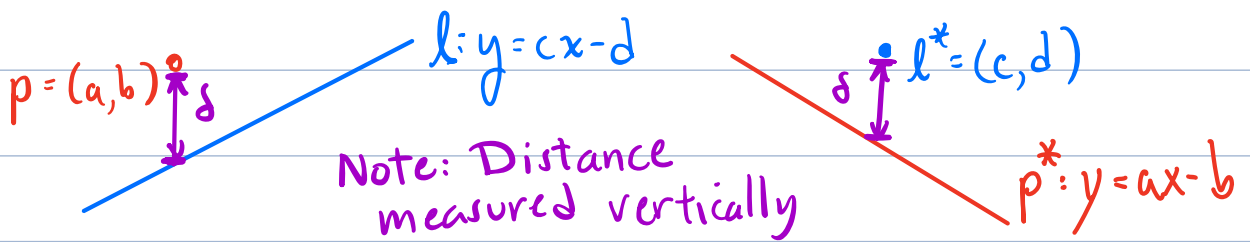 p = (a,b)
δ
l: y = cx - d
δ
l* = (c, d)
Note: Distance
measured vertically
p*: y = ax - b